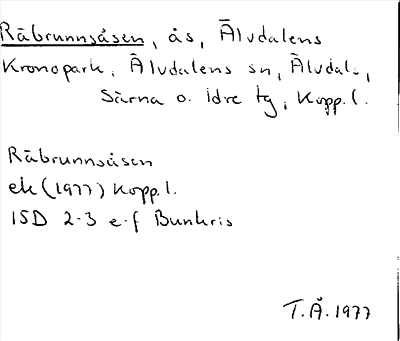 Råbrunnsåsen, ås, Älvdalens
Kronopark, Älvdalens sn, Älvdal.,
Särna o. Idre tg, Kopp. l.
Råbrunnsåsen
ek (1977) Kopp. l.
15D 2-3 e-f Bunkris
T.Å. 1977